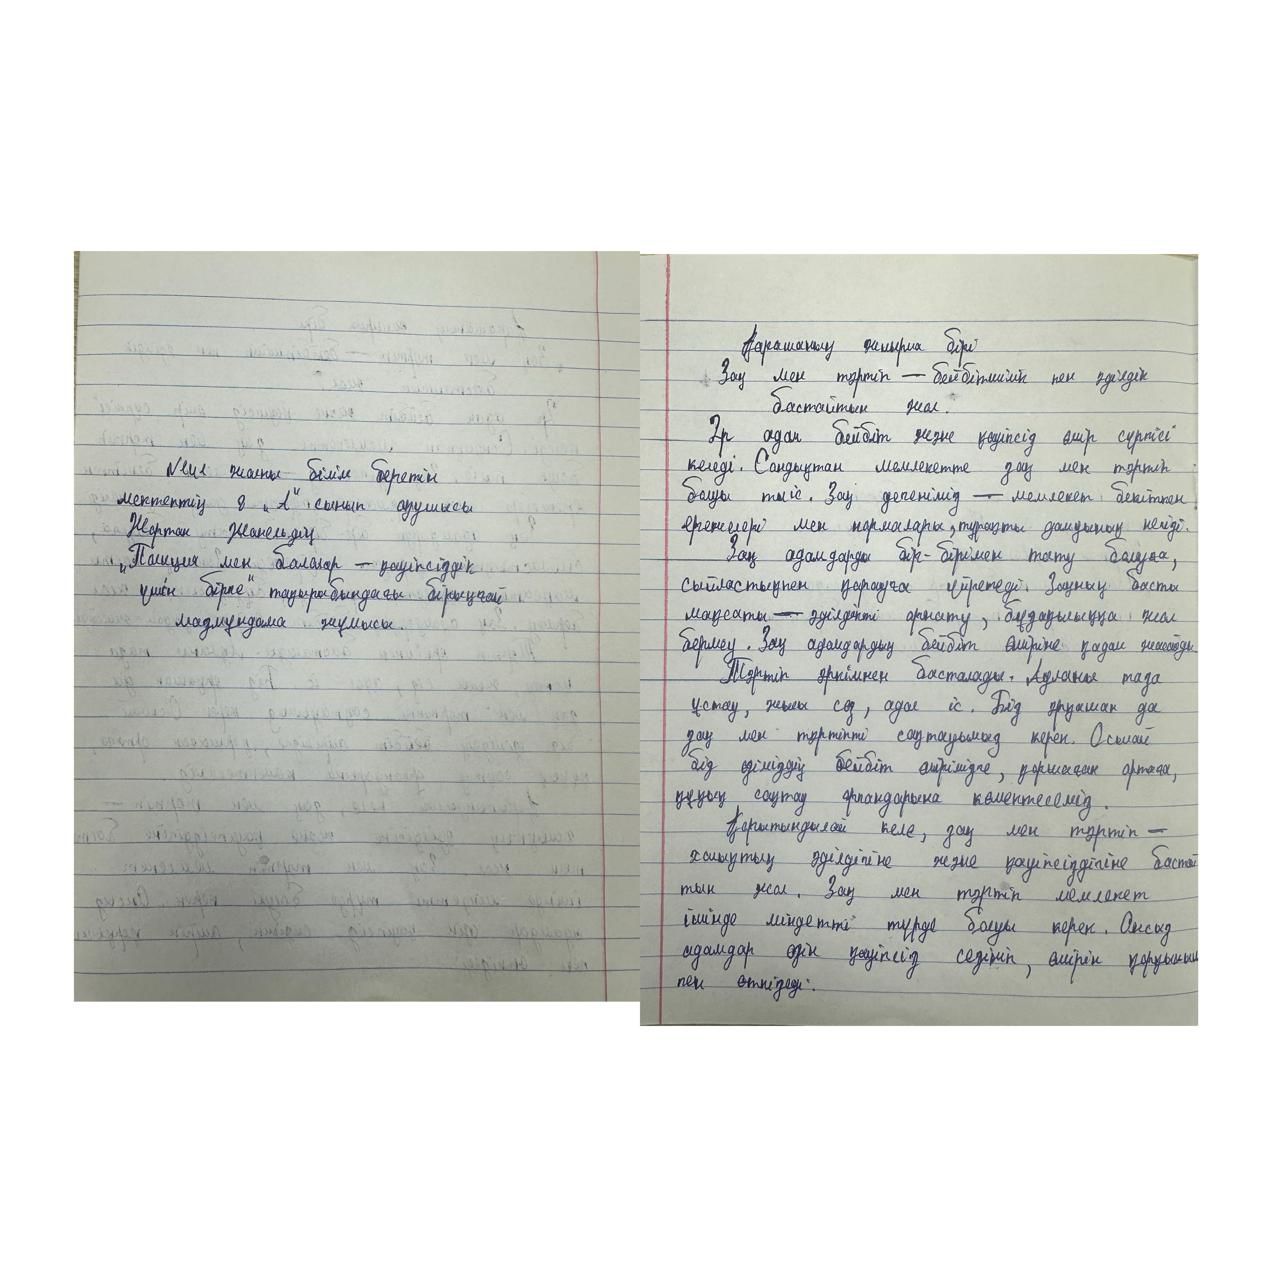 жалпы білім беретін
мектептің 8 "А" сынып оқушысы
Жортан Жанельдің
"Полиция мен балалар – қауіпсіздік
үшін бірге" тақырабындағы бірыңғай
мазмұндама жұмысы.
Қарашаның жиырма бірі
Заң мен тәртіп – бейбітшілік пен әділдік
бастайтын жол.
Әр адам бейбіт және қауіпсіз өмір сүргісі
келеді. Сондықтан мемлекетте заң мен тәртіп
болуы тиіс. Заң дегеніміз – мемлекет бекіткен
ережелері мен нормалары, тұрақты дамудың кепілі.
Заң адамдарды бір-бірімен тату болуға,
сыйластықпен қарауға үйретеді. Заңның басты
мақсаты – әділдікті орнату, бұзақылыққа жол
бермеу. Заң адамдардың бейбіт өміріне қадам жасайды
Тәртіп әркімнен басталады. Айналаны таза
ұстау, жылы сөз, адал іс. Біз әрқашан да
заң мен тәртіпті сақтауымыз керек. Осылай
біз еліміздің бейбіт өмірімізге, қоршаған ортаға,
құқық сақтау органдарына көмектесеміз.
Қорытындылай келе, заң мен тәртіп –
халықтың әділдігіне және қауіпсіздігіне бастай
тын жол. Заң мен тәртіп мемлекет
ішінде міндетті түрде болуы керек. Онсыз
адамдар өзін қауіпсіз сезініп, өмірін қорқыныш
пен өткізеді.